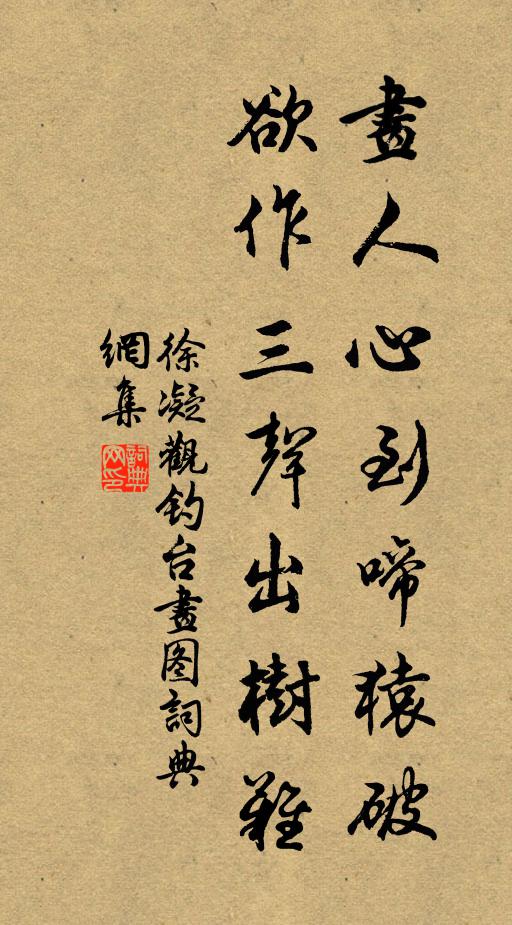 畫人心到啼猿破
欲作三聲出樹難
徐凝觀釣台畫图詞典
網集
詞典网印